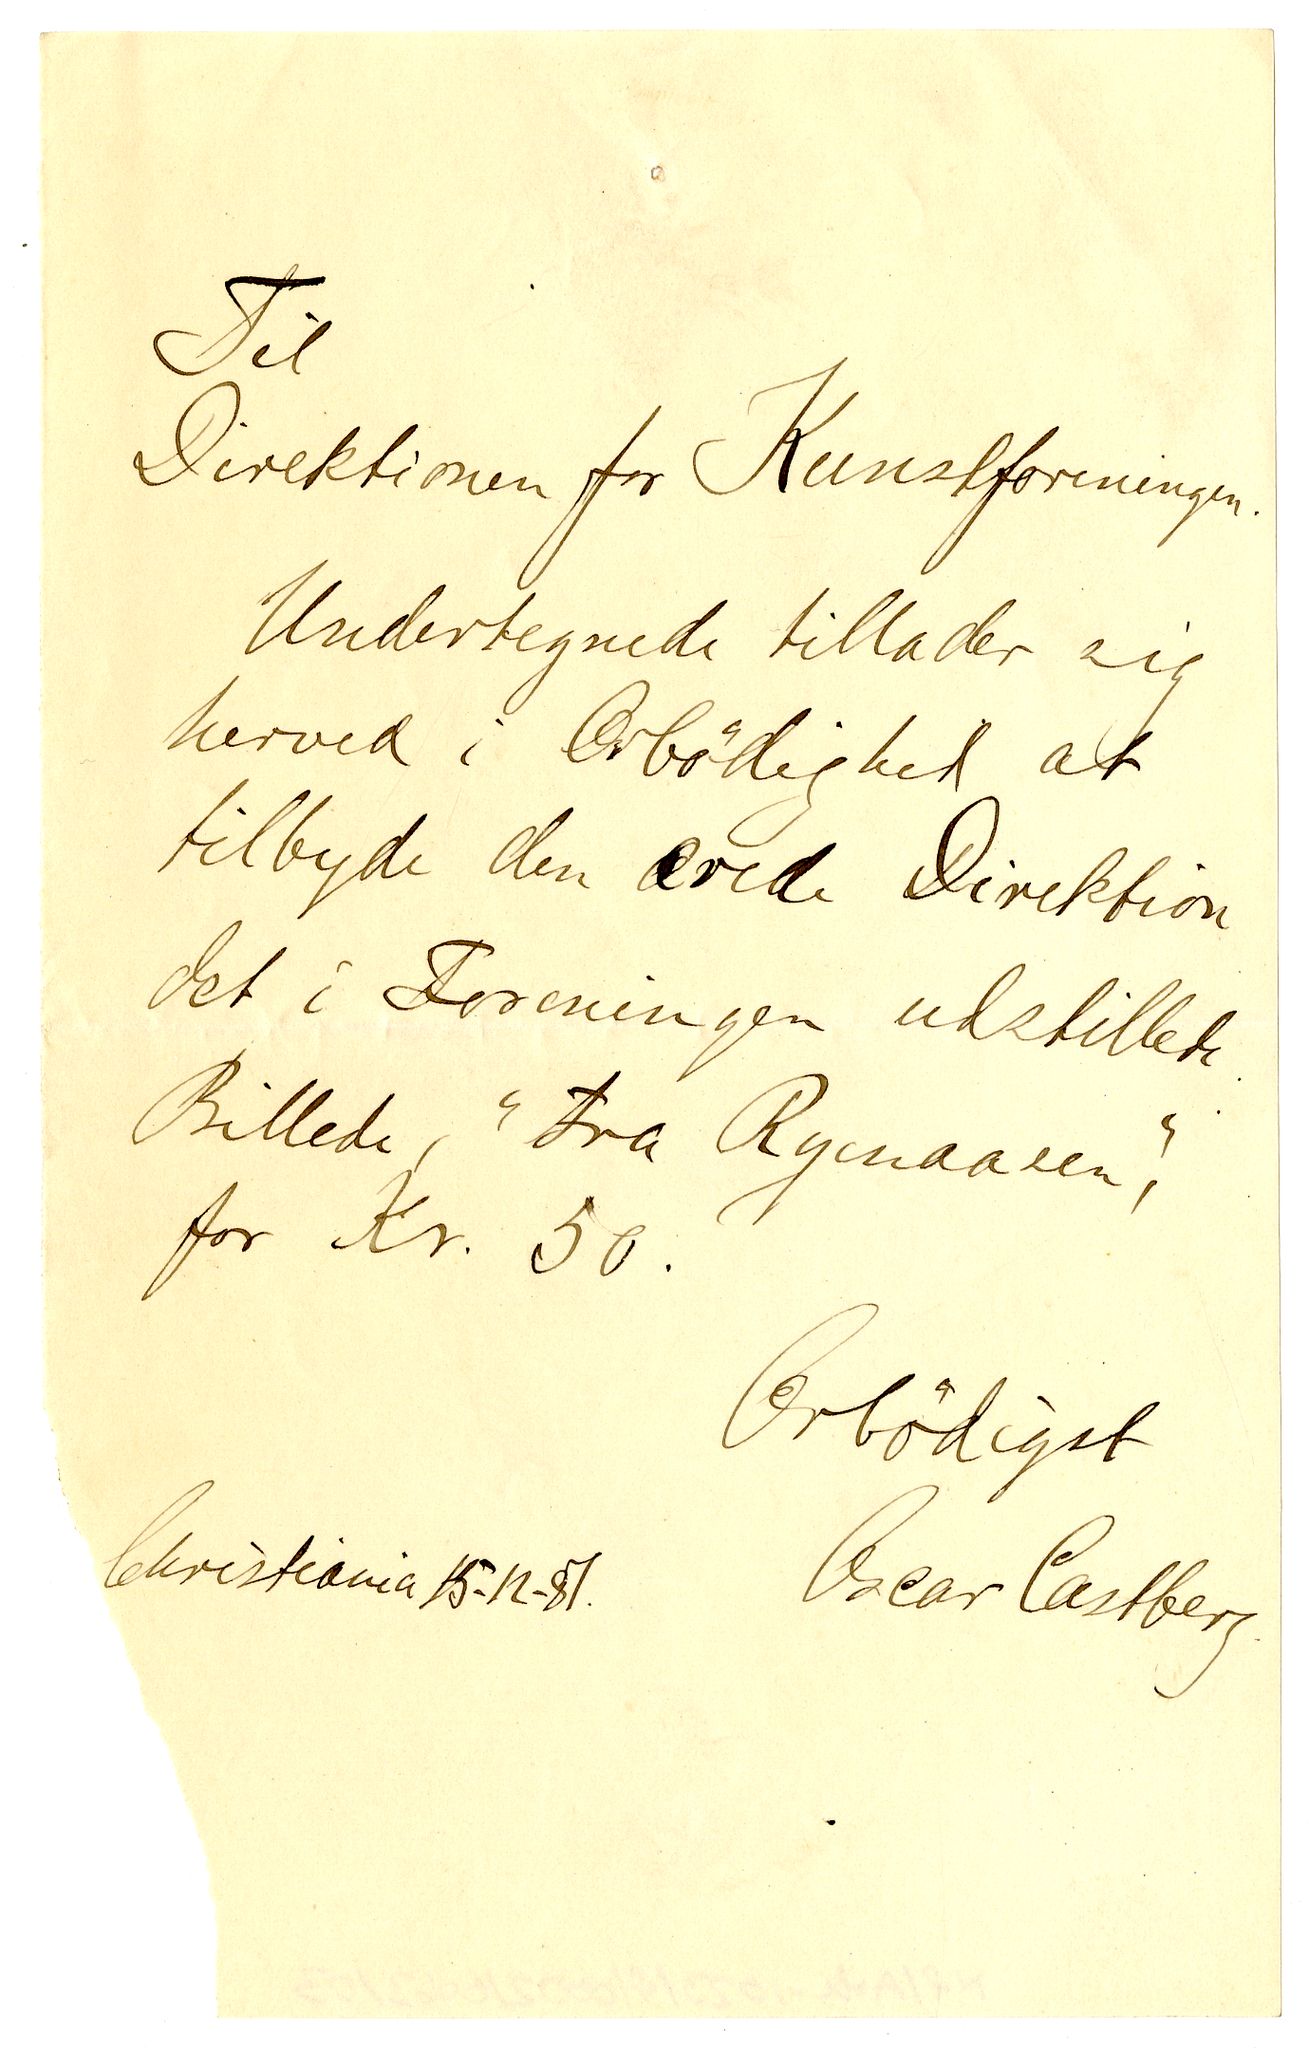 Til
Direktionen for Kunstforeningen.
Undertegnede tillader sig
herved i Ærbödighed at
tilbyde den ærede Direktion
det i Foreningen udstillede
Billede, "Fra Ryenaasen",
for Kr. 50.
Ærbödigst
Oscar Castberg
Christiania 15-12-81.